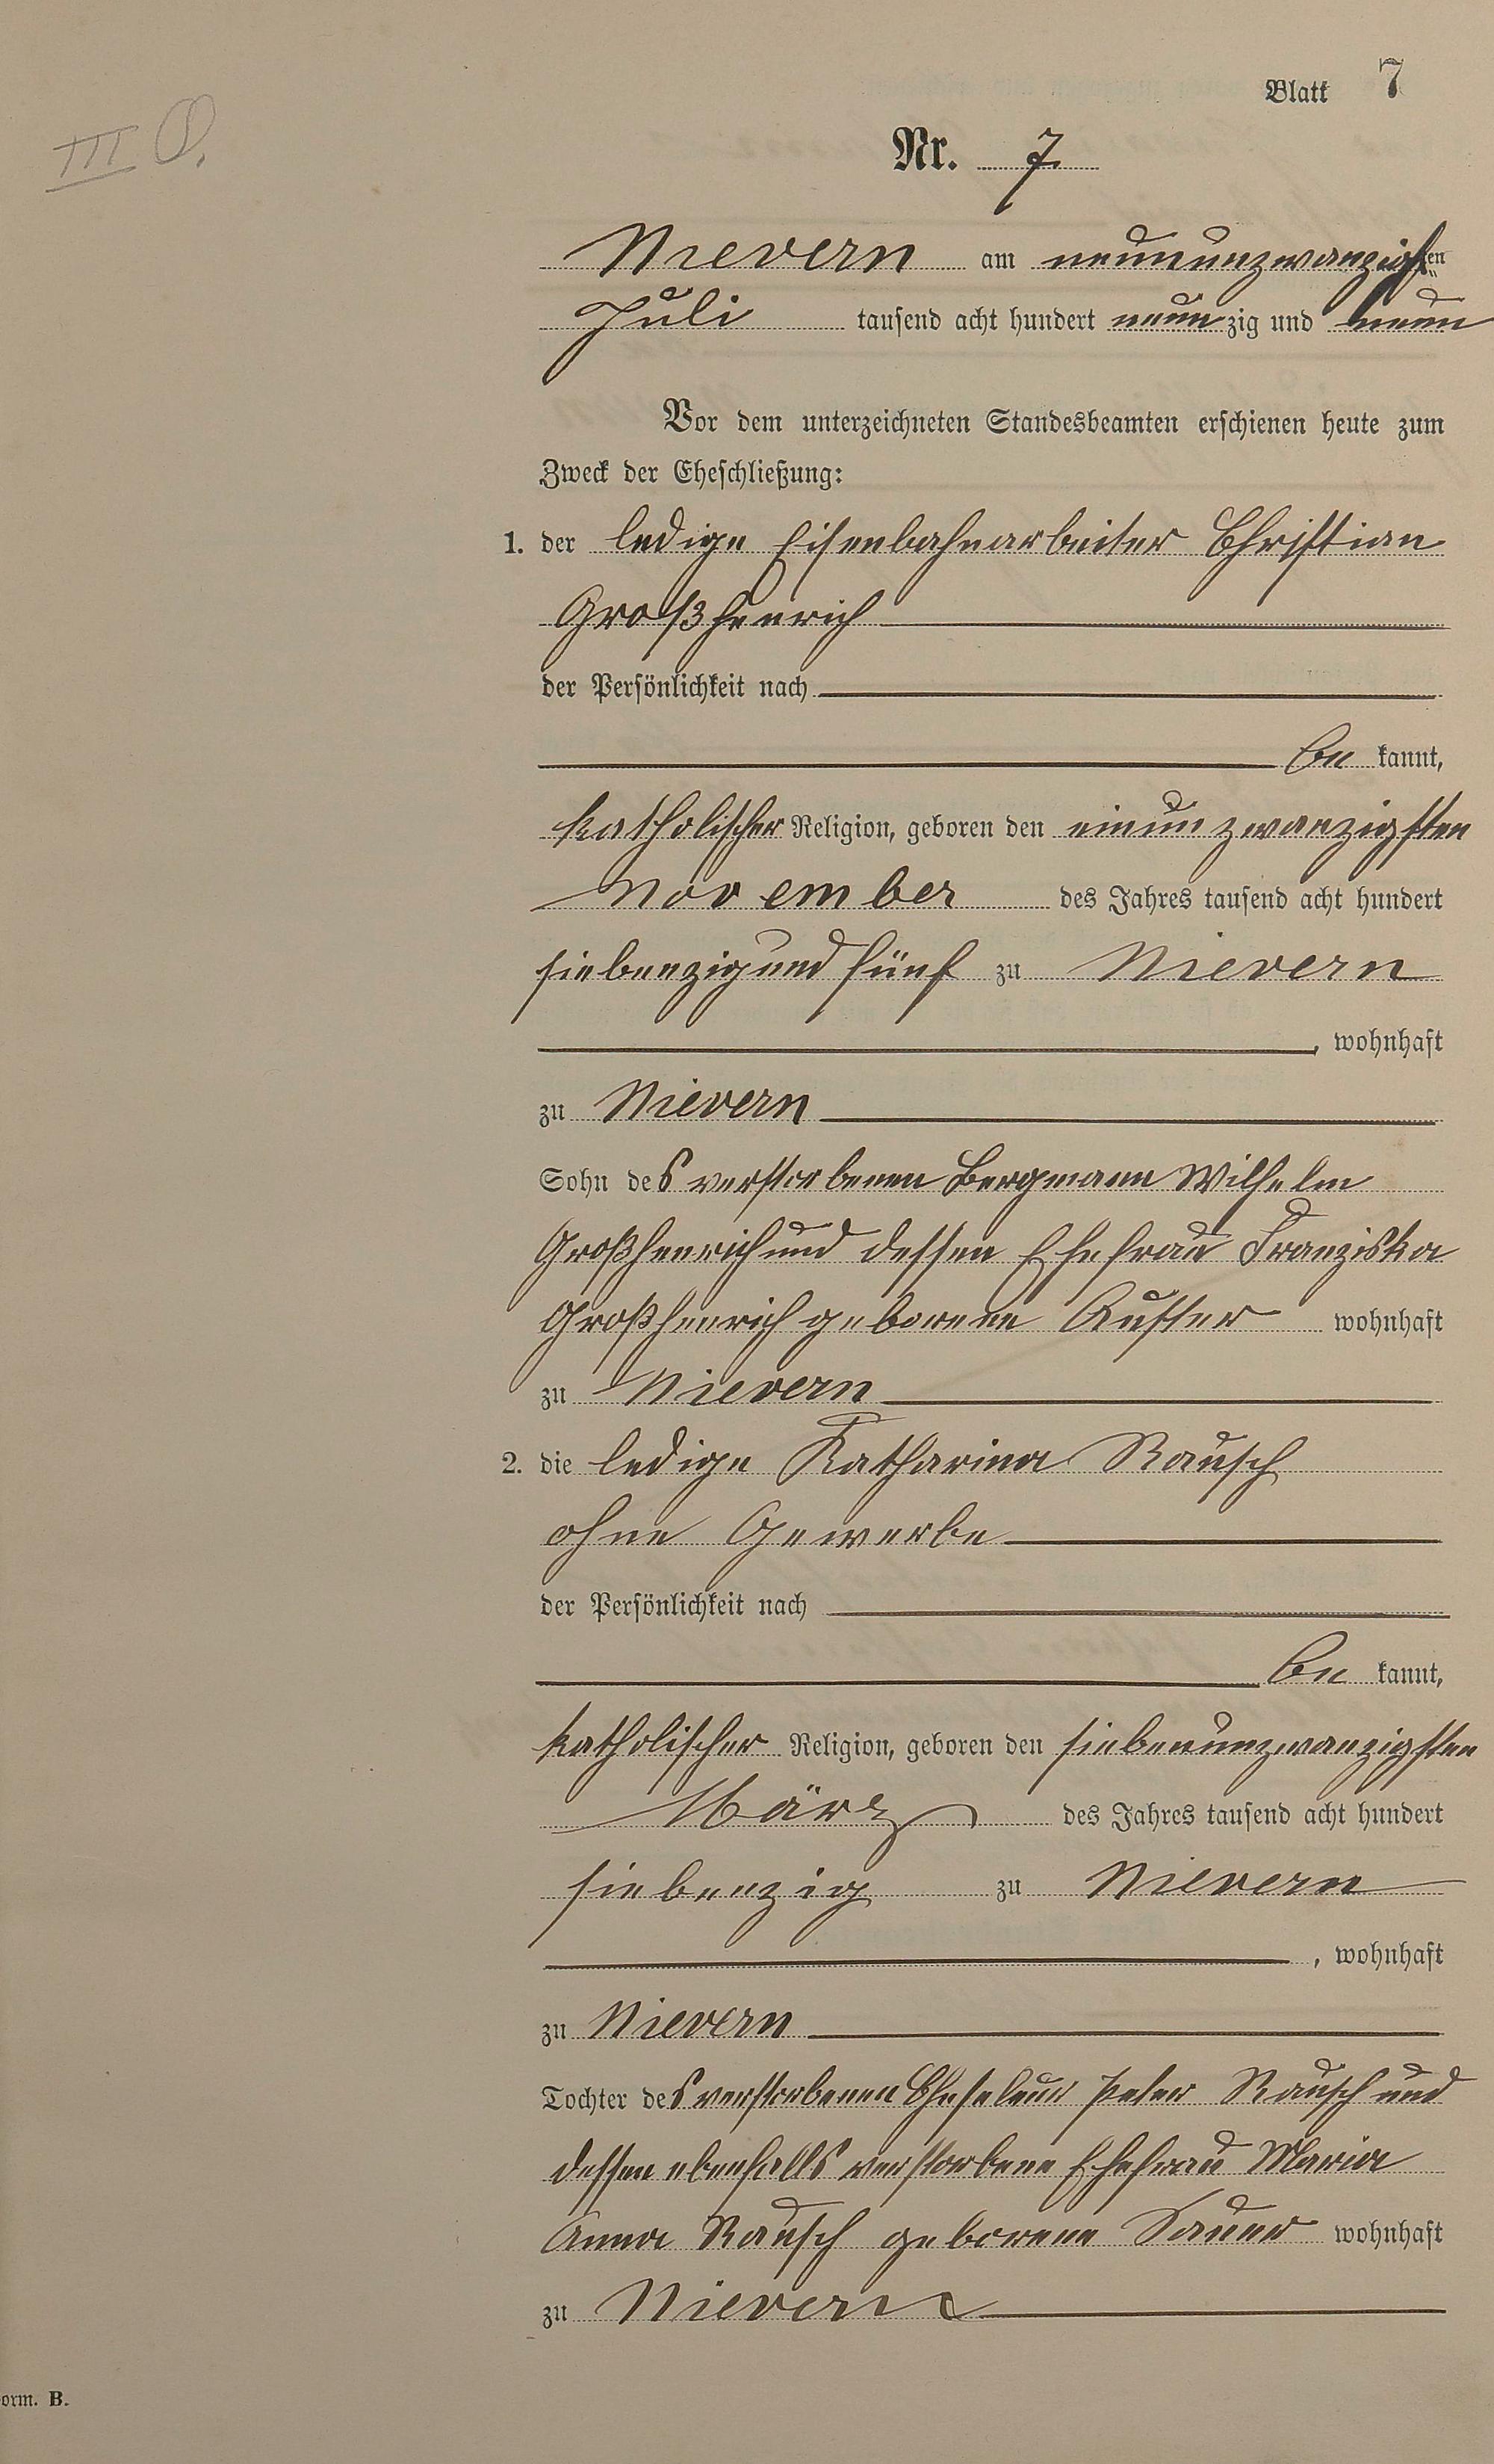 Blatt 7
III O.
Nr. 7
Nievern am neunundzwanzigsten
Juli tausend acht hundert neunzig und neun
Vor dem unterzeichneten Standesbeamten erschienen heute zum
Zweck der Eheschließung:
1. der ledige Eisenbahnarbeiter Christian
Großhenrich
der Persönlichkeit nach
be kannt,
katholischer Religion, geboren den einunzwanzigsten
November des Jahres tausend acht hundert
siebenzig und fünf zu Nievern
, wohnhaft
zu Nievern
Sohn des verstorbenen Bergmann Wilhelm
Großhenrich und dessen Ehefrau Franziska
Großhenrich geborene wohnhaft
zu Nievern
2. die ledige Katharina Rausch
ohne Gewerbe
der Persönlichkeit nach
be kannt,
katholischer Religion, geboren den siebenunzwanzigsten
März des Jahres tausend acht hundert
siebenzig zu Nievern
, wohnhaft
zu Nievern
Tochter des verstorbenen Peter Rausch und
dessen ebenfalls verstorbene Ehefrau Maria
Anna Rausch geborene Sauer wohnhaft
zu Nievern
orm. B.